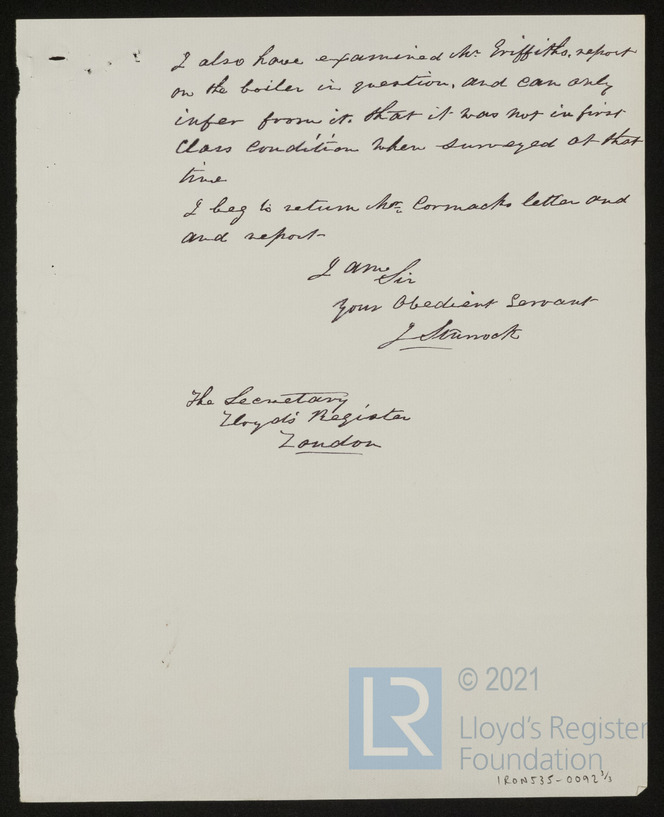 I also have examined Mr Griffiths, report
on the boiler in question, and can only
infer from it. that it was not in first
Class condition when surveyed at that
time
I beg to return Mr. Cormacks letter and
and report-
I am Sir
Your Obedient Servant
J Sturrock
The Secretary
Lloyd's Register
London
LR © 2021
Lloyd's Register
Foundation
IRON535-0092 1/3